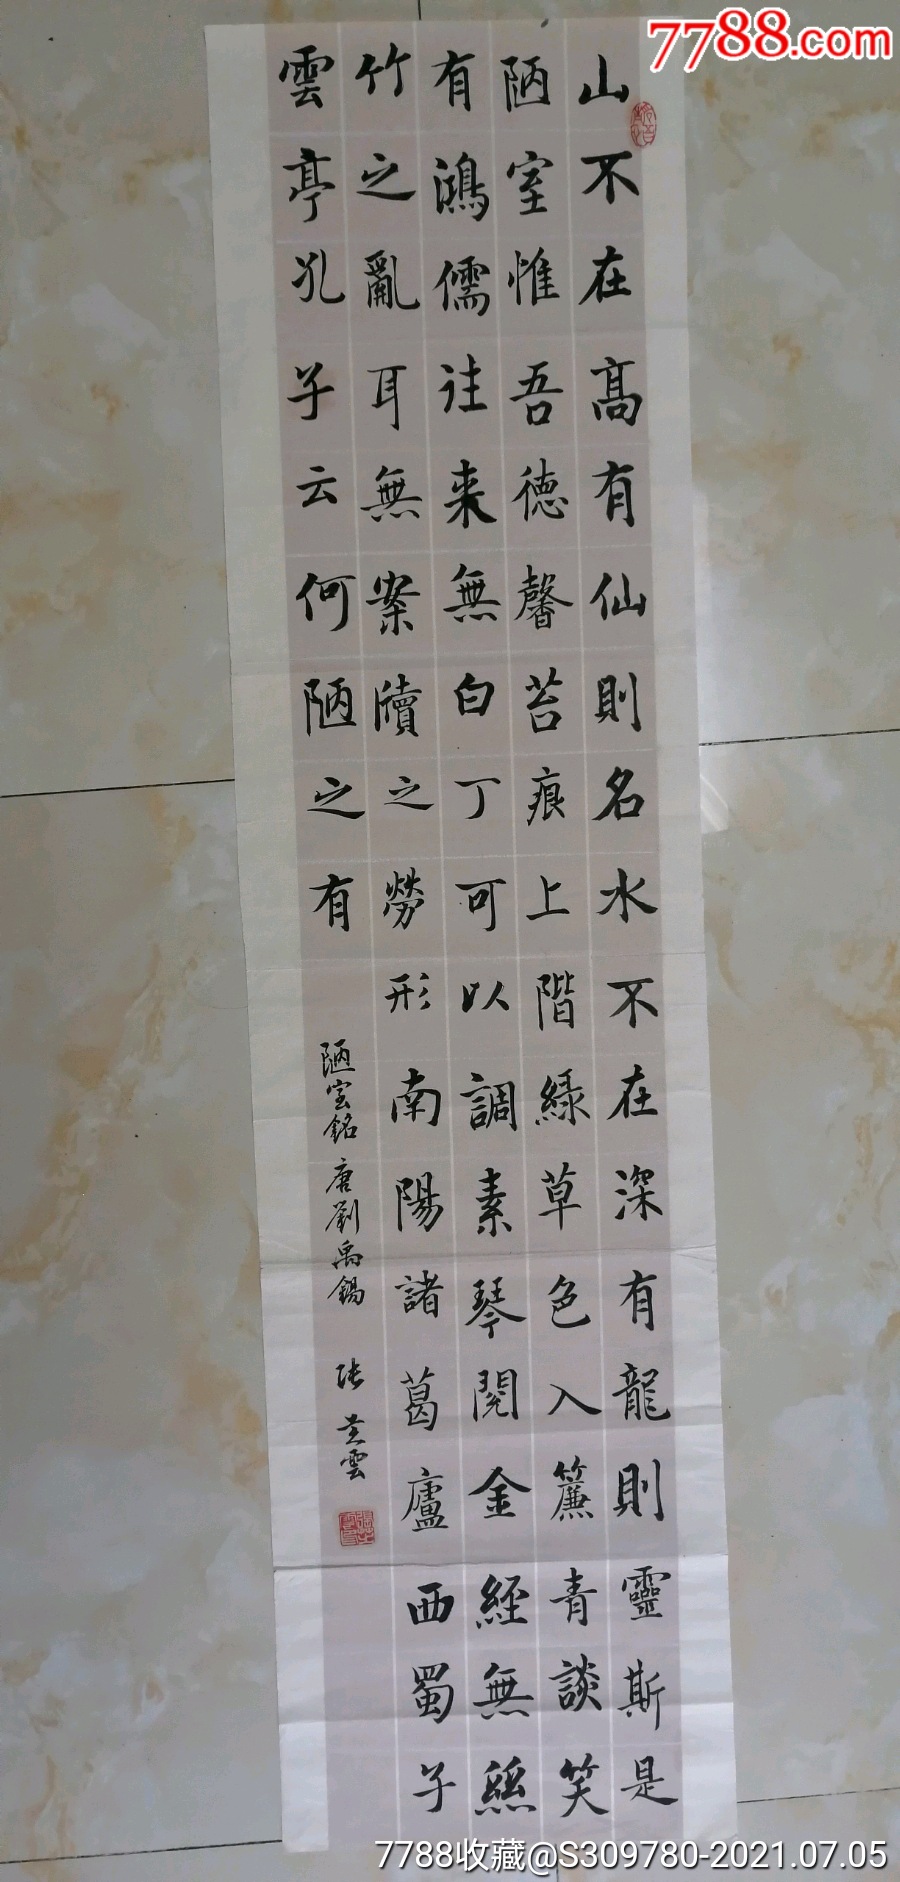 7788.com
山不在髙有仙則名水不在深有龍則靈斯是
陋室惟吾德馨苔痕上階緑草色入簾青談笑
有鴻儒往来無白丁可以調素琴閱金經無絲
竹之亂耳無案牘之勞形南陽諸葛廬西蜀子
雲亭孔子云何陋之有
陋室銘 唐劉禹錫 張 雲
7788收藏@S309780-2021.07.05